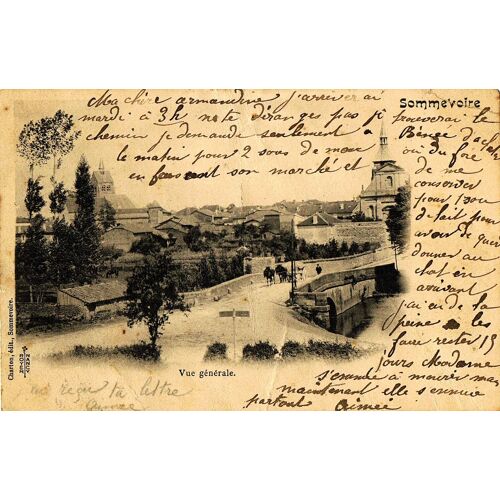 Sommevoire
Ma chère armandine j'arriverai
mardi à 3h ne te déranges pas je trouverai le
chemin je demande seulement à Bénée d'acheter
le matin pour 2 sous de mou ou du foie
en faisant son marché et de me
conserver
pour 1 sou
de lait pour
avoir de quoi
donner au
chat en
avant
j'ai eu de la
peine à les
faire rester 15
jours Madame
s'ennuie à mourir mais
maintenant elle s'ennuie
partout Aimée
Vue générale.
Charton, édit, Sommevoire.
reçu ta lettre
Aimée